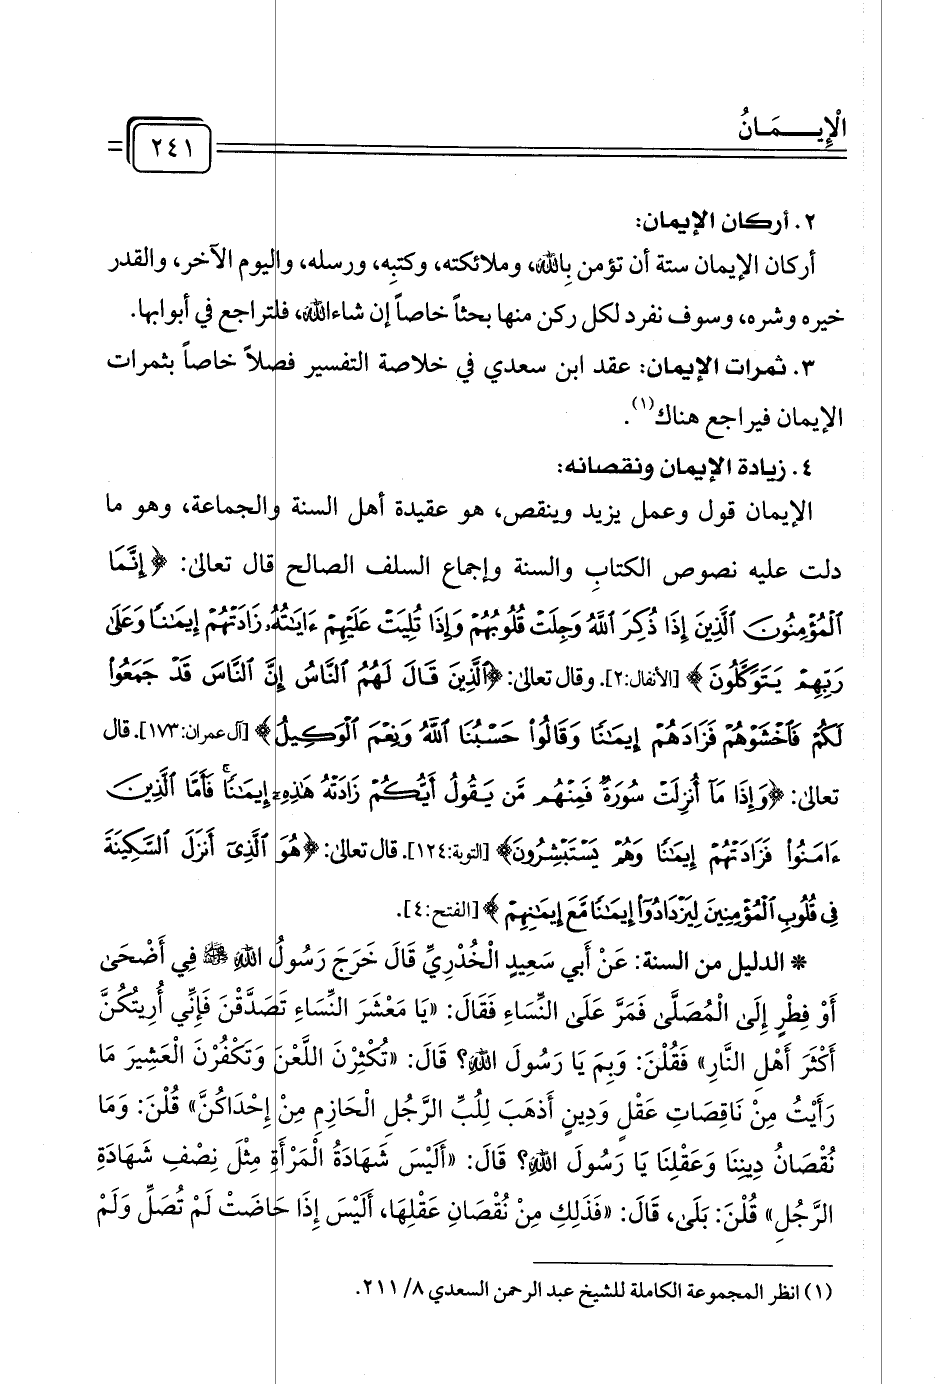 الْإِيـــمَـانُ
٢٤١
٢. أركان الإيمان:
أركان الإيمان ستة أن تؤمن بِالله، وملائكته، وكتبِه، ورسله، واليوم الآخر، والقدر
خيره وشره، وسوف نفرد لكل ركن منها بحثاً خاصاً إن شاءالله، فلتراجع في أبوابها.
٣. ثمرات الإيمان: عقد ابن سعدي في خلاصة التفسير فصلاً خاصاً بثمرات
الإيمان فيراجع هناك(١).
٤. زيادة الإيمان ونقصانه:
الإيمان قول وعمل يزيد وينقص، هو عقيدة أهل السنة والجماعة، وهو ما
دلت عليه نصوص الكتابِ والسنة وإجماع السلف الصالح قال تعالىٰ: ﴿إِنَّمَا
ٱلْمُؤْمِنُونَ ٱلَّذِينَ إِذَا ذُكِرَ ٱللَّهُ وَجِلَتْ قُلُوبُهُمْ وَإِذَا تُلِيَتْ عَلَيْهِمْ ءَايَٰتُهُۥ زَادَتْهُمْ إِيمَٰنًا وَعَلَىٰ
رَبِّهِمْ يَتَوَكَّلُونَ﴾ [الأنفال:٢]. وقال تعالىٰ: ﴿ٱلَّذِينَ قَالَ لَهُمُ ٱلنَّاسُ إِنَّ ٱلنَّاسَ قَدْ جَمَعُوا۟
لَكُمْ فَٱخْشَوْهُمْ فَزَادَهُمْ إِيمَٰنًا وَقَالُوا۟ حَسْبُنَا ٱللَّهُ وَنِعْمَ ٱلْوَكِيلُ﴾ [آل عمران:١٧٣]. قال
تعالىٰ: ﴿وَإِذَا مَآ أُنزِلَتْ سُورَةٌ فَمِنْهُم مَّن يَقُولُ أَيُّكُمْ زَادَتْهُ هَٰذِهِۦٓ إِيمَٰنًا ۚ فَأَمَّا ٱلَّذِينَ
ءَامَنُوا۟ فَزَادَتْهُمْ إِيمَٰنًا وَهُمْ يَسْتَبْشِرُونَ﴾ [التوبة:١٢٤]. قال تعالىٰ: ﴿هُوَ ٱلَّذِىٓ أَنزَلَ ٱلسَّكِينَةَ
فِى قُلُوبِ ٱلْمُؤْمِنِينَ لِيَزْدَادُوٓا۟ إِيمَٰنًا مَّعَ إِيمَٰنِهِمْ﴾ [الفتح:٤].
* الدليل من السنة: عَنْ أَبي سَعِيدٍ الْخُدْرِيِّ قَالَ خَرَجَ رَسُولُ اللهِ ﷺ فِي أَضْحَىٰ
أَوْ فِطْرٍ إِلَىٰ الْمُصَلَّى فَمَرَّ عَلَىٰ النِّسَاءِ فَقَالَ: «يَا مَعْشَرَ النِّسَاءِ تَصَدَّقْنَ فَإِنِّي أُرِيتُكُنَّ
أَكْثَرَ أَهْلِ النَّارِ» فَقُلْنَ: وَبِمَ يَا رَسُولَ اللهِ؟ قَالَ: «تُكْثِرْنَ اللَّعْنَ وَتَكْفُرْنَ الْعَشِيرَ مَا
رَأَيْتُ مِنْ نَاقِصَاتِ عَقْلٍ وَدِينٍ أَذْهَبَ لِلُبِّ الرَّجُلِ الْحَازِمِ مِنْ إِحْدَاكُنَّ» قُلْنَ: وَمَا
نُقْصَانُ دِينِنَا وَعَقْلِنَا يَا رَسُولَ اللهِ؟ قَالَ: «أَلَيْسَ شَهَادَةُ الْمَرْأَةِ مِثْلَ نِصْفِ شَهَادَةِ
الرَّجُلِ» قُلْنَ: بَلَىٰ، قَالَ: «فَذَلِكِ مِنْ نُقْصَانِ عَقْلِهَا، أَلَيْسَ إِذَا حَاضَتْ لَمْ تُصَلِّ وَلَمْ
(١) انظر المجموعة الكاملة للشيخ عبد الرحمن السعدي ٨/ ٢١١.